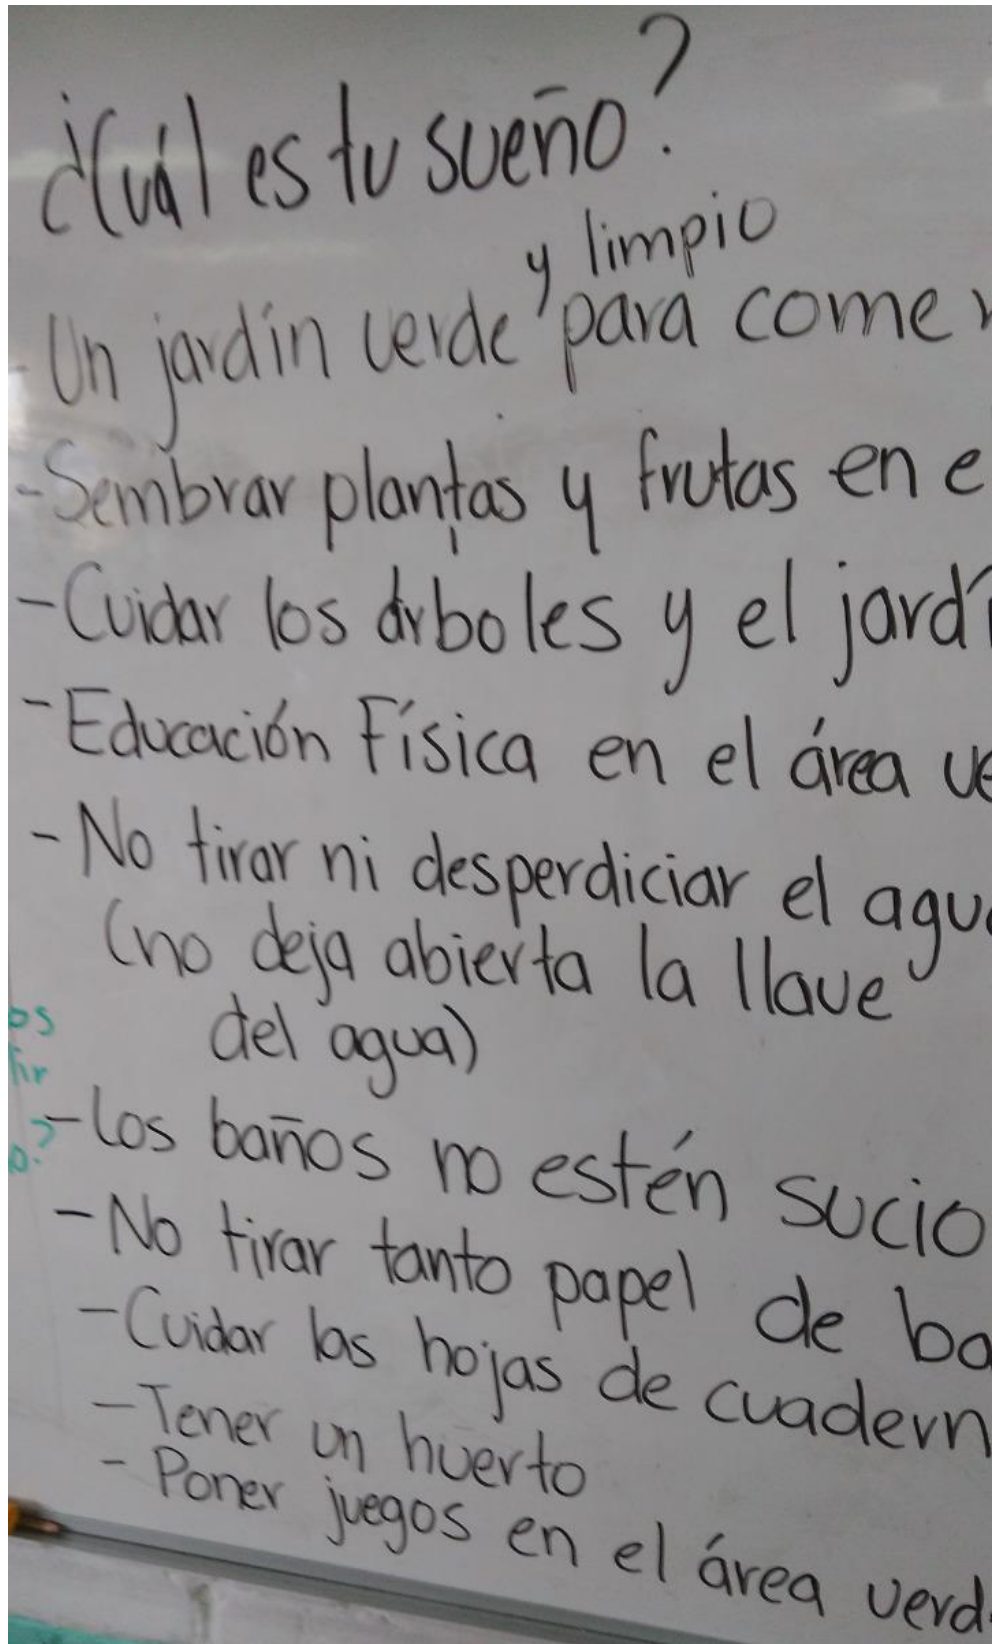 ¿Cuál es tu sueño?
y limpio
- Un jardín verde para comer
- Sembrar plantas y frutas en e
- Cuidar los árboles y el jardí
- Educación Física en el área ve
- No tirar ni desperdiciar el agua
(no deja abierta la llave
del agua)
os
fir
o?
- Los baños no estén sucio
- No tirar tanto papel de ba
- Cuidar las hojas de cuadern
- Tener un huerto
- Poner juegos en el área verd